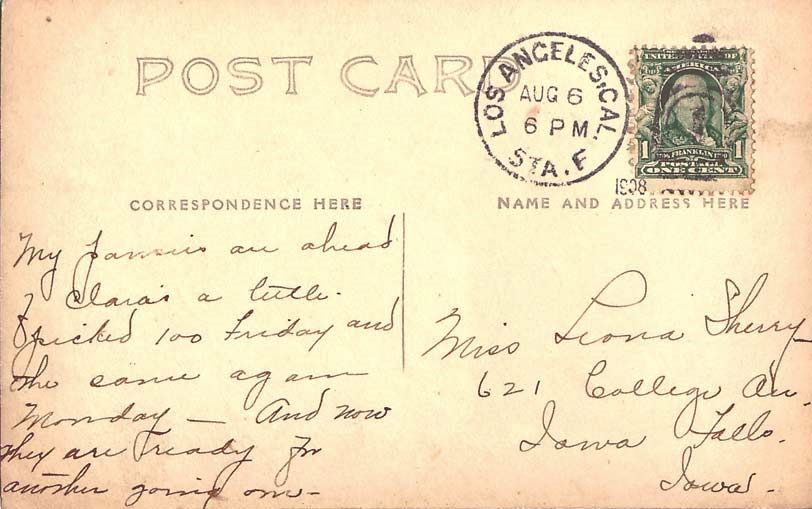 POST CARD
LOS ANGELES, CAL.
AUG 6
6 PM
STA. F
1908
UNITED STATES OF
AMERICA
FRANKLIN
1 POSTAGE 1
ONE CENT
CORRESPONDENCE HERE
NAME AND ADDRESS HERE
My pansies are ahead
of Clara's a little.
I picked 100 Friday and
the same again
Monday — And now
they are ready for
another going over-
Miss Leona Sherry
621 College Av.
Iowa Falls.
Iowa.